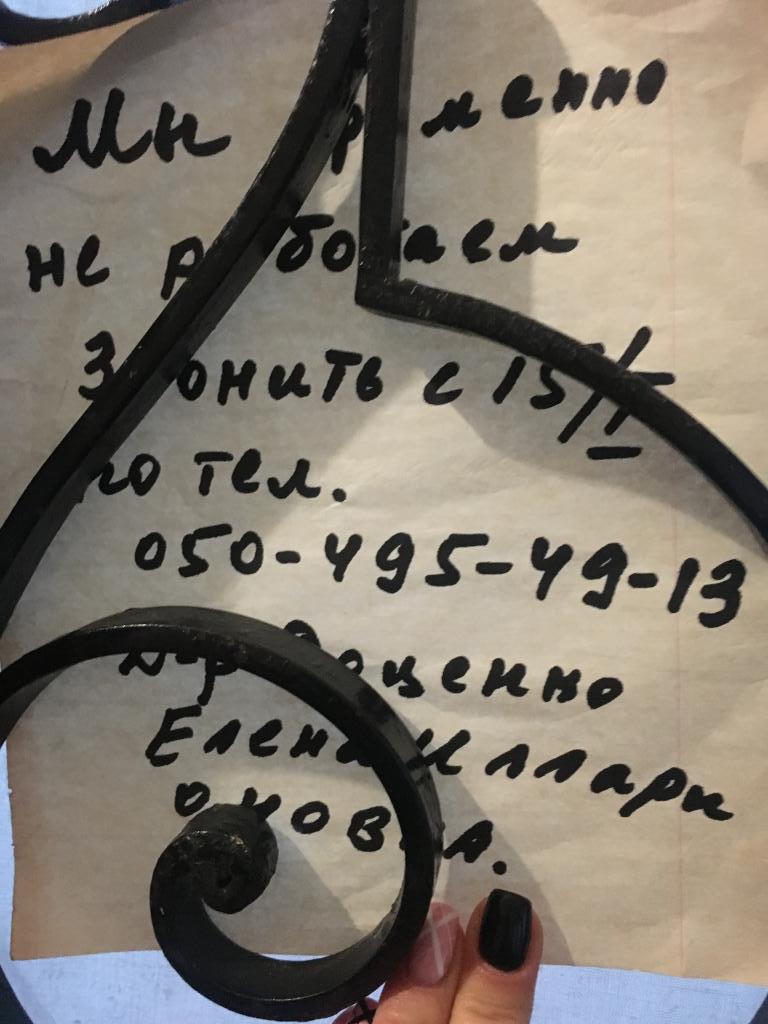 Мы временно
не работаем
Звонить с 15/II
по тел.
050-495-49-13
д-р Доценко
Елена Иллари
оновна.